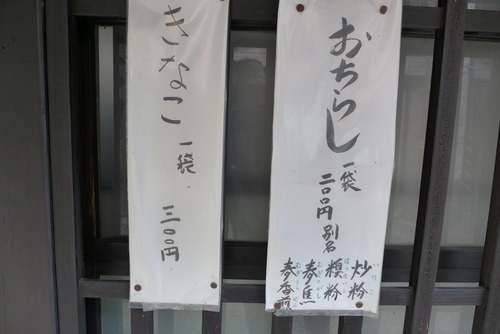 おちらし
一袋
二〇〇円
別名
炒粉
糗粉
麦焦
麦香煎
きなこ
一袋
三〇〇円